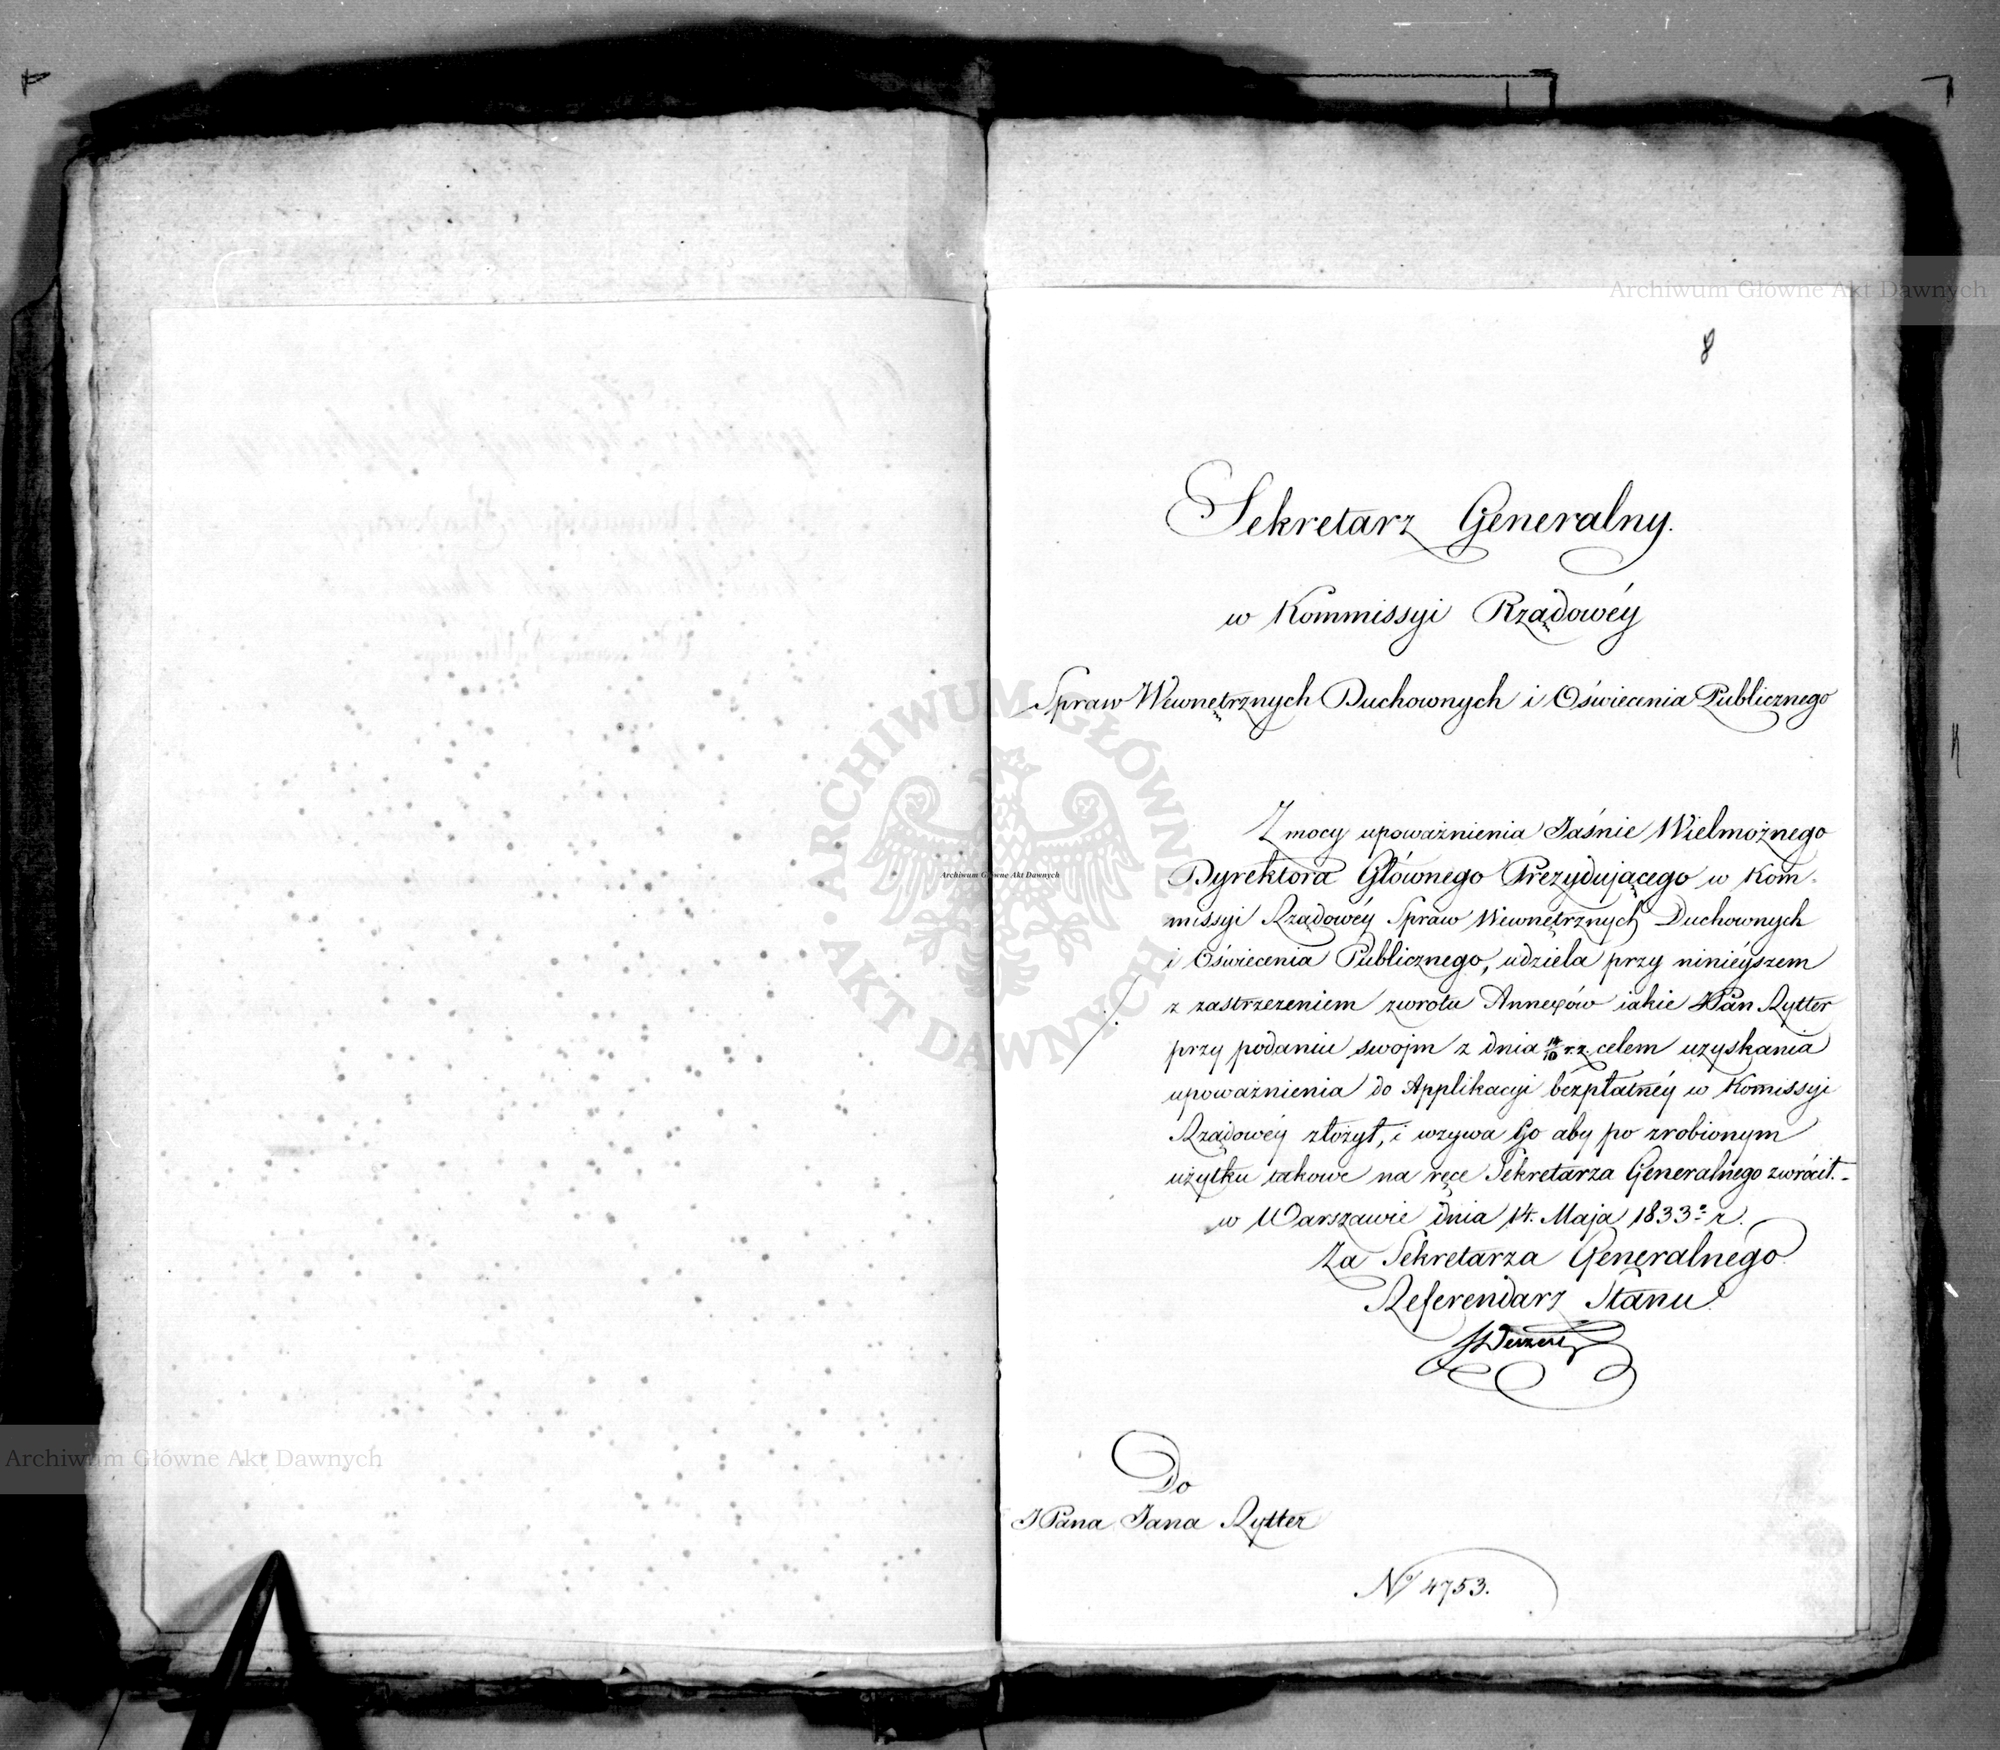 8
Sekretarz Generalny.
w Kommissyi Rządowéy
Spraw Wewnętrznych Duchownych i Oświecenia Publicznego
Z mocy upoważnienia Jaśnie Wielmożnego
Dyrektora Głównego Prezydującego w Kom-
missyi Rządowéy Spraw Wewnętrznych Duchownych
i Oświecenia Publicznego, udziela przy ninieyszem
z zastrzeżeniem zwrotu Annexów iakie JPan Rytter
przy podaniu swojm z dnia r. z. celem uzyskania
upoważnienia do Applikacyi bezpłatnéy w Komissyi
Rządowéy złożył, i wzywa Go aby po zrobionym
użytku takowe na ręce Sekretarza Generalnego zwrócił.-
w Warszawie dnia 14. Maja 1833 r.
Za Sekretarza Generalnego
Referendarz Stanu
Do
JPana Jana Rytter
No 4753.
Archiwum Główne Akt Dawnych
Archiwum Główne Akt Dawnych
Archiwum Główne Akt Dawnych
ARCHIWUM GŁÓWNE AKT DAWNYCH